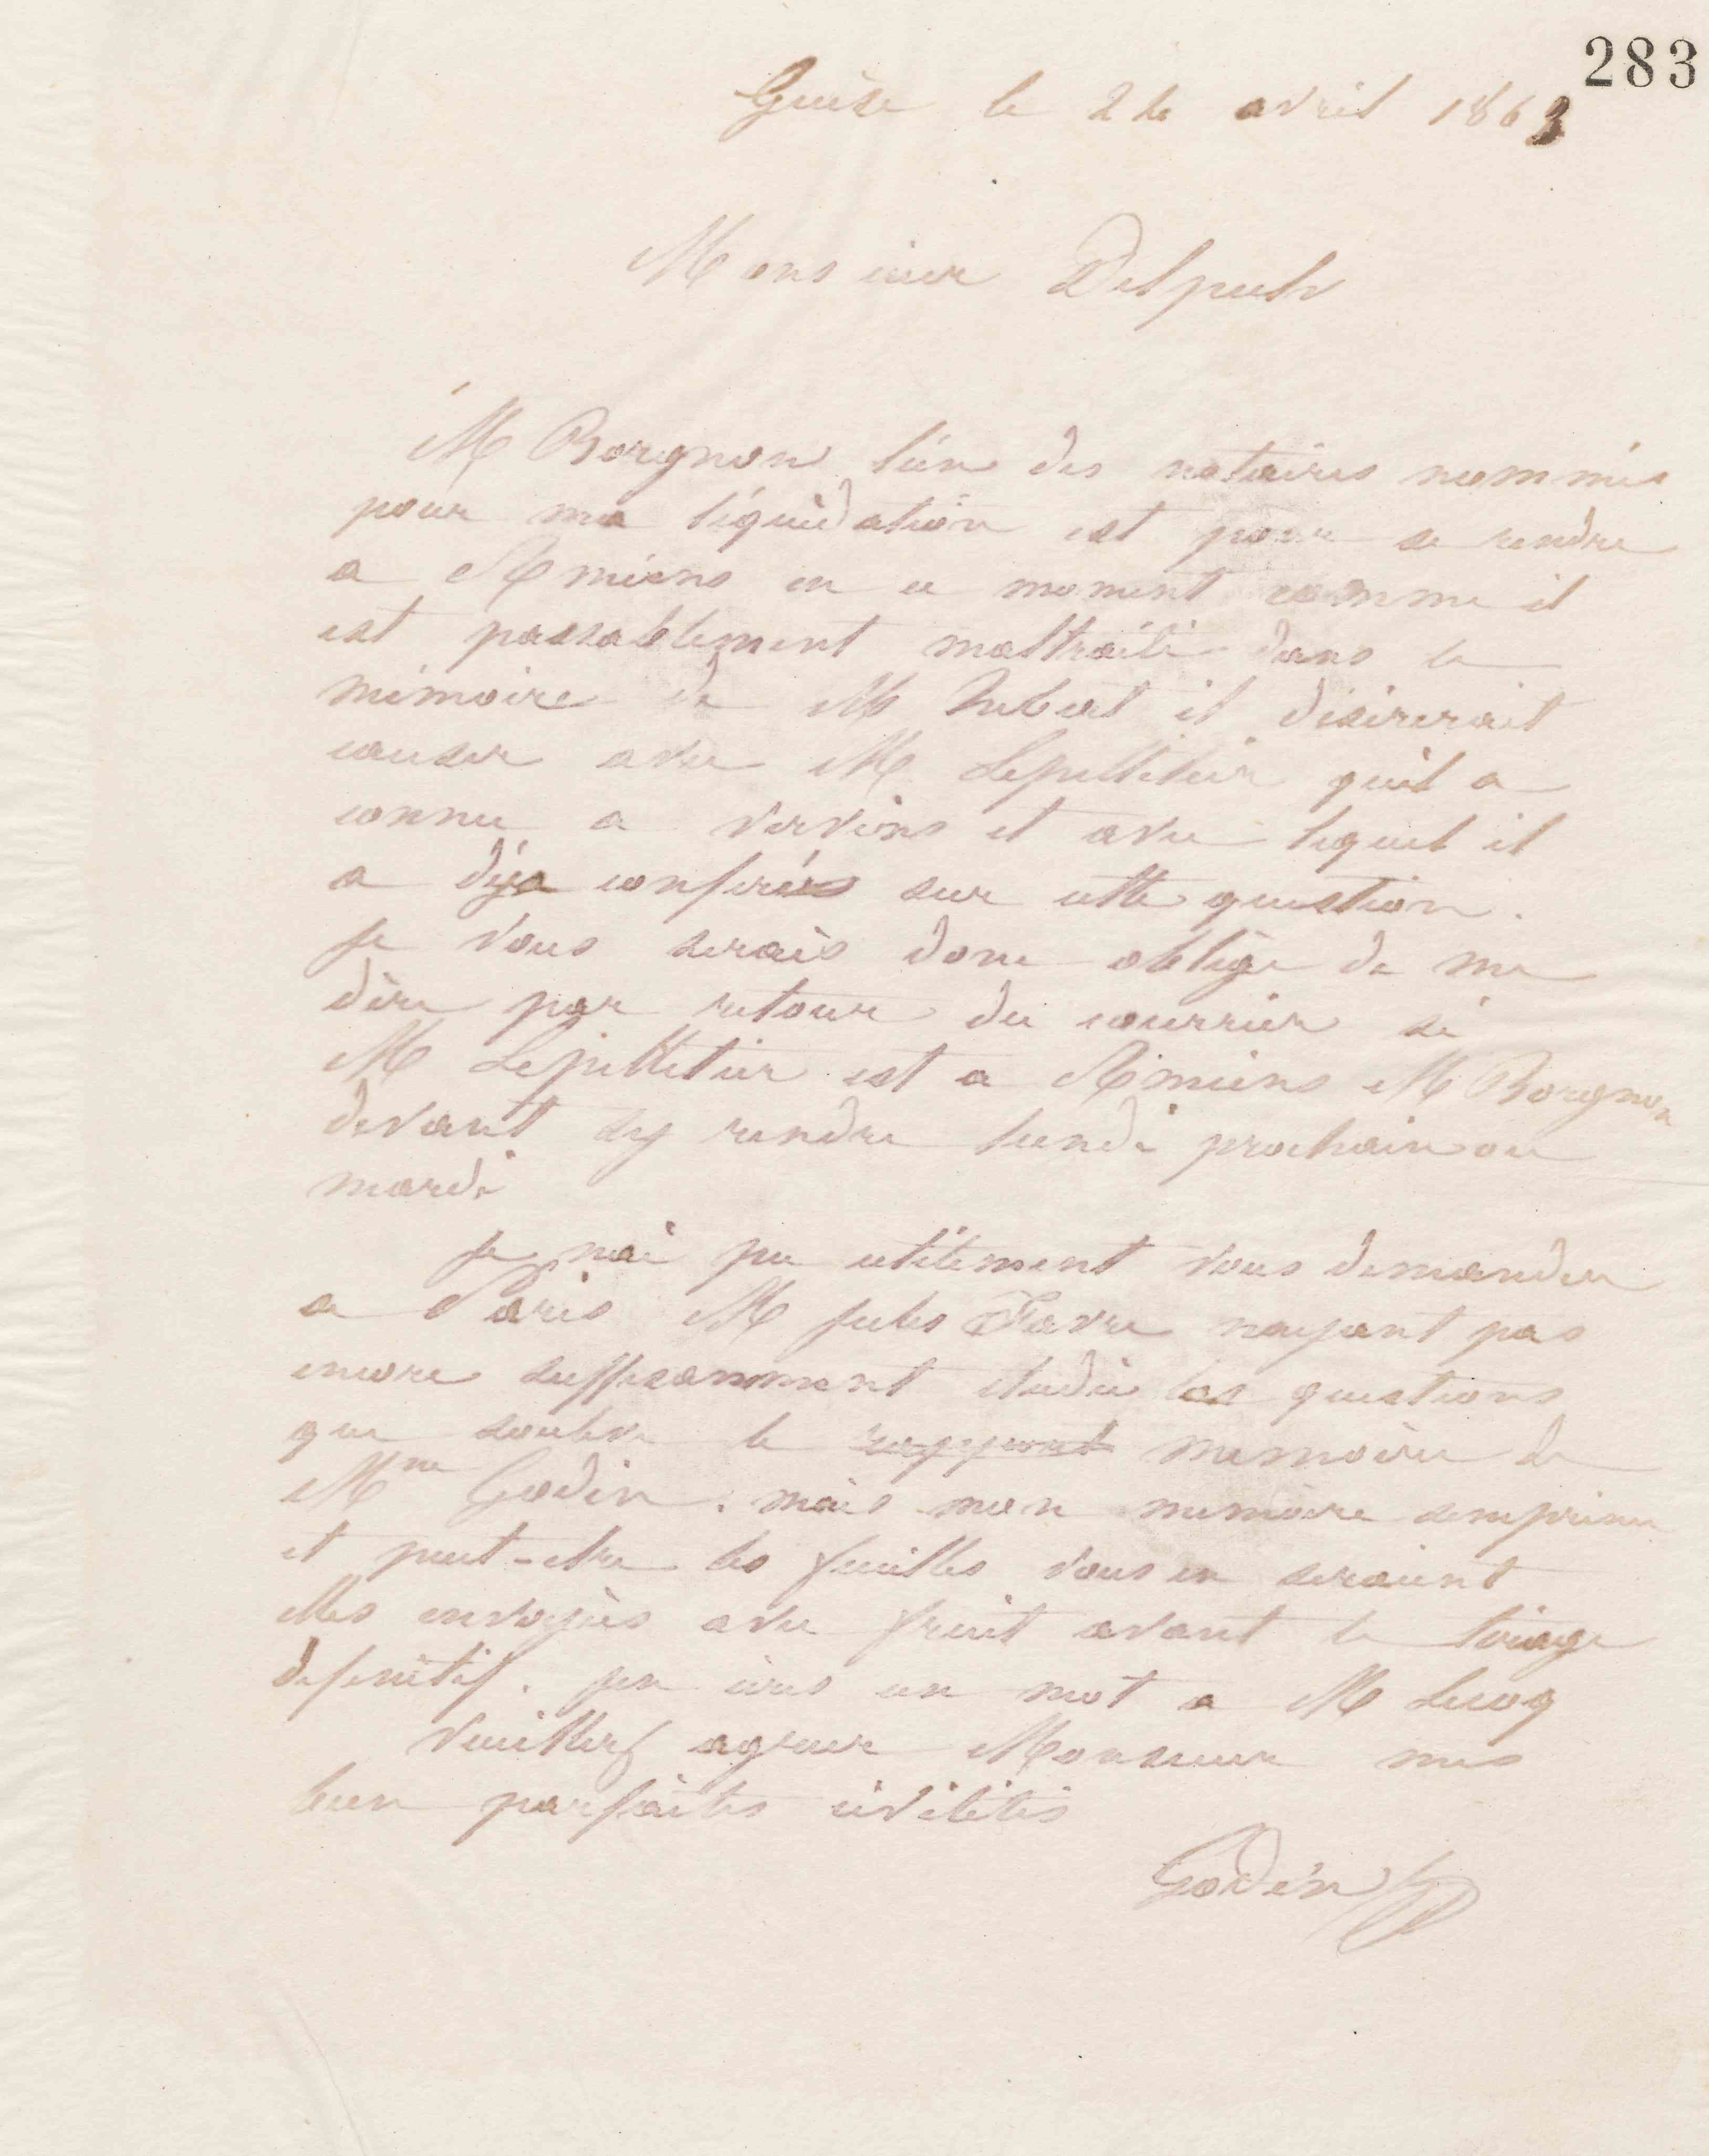 283
Guise le 24 avril 1863
Monsieur Delpech
M Borgnon l'un des notaires nommés
pour ma liquidation est pour se rendre
a Amiens en ce moment comme il
est passablement maltraité dans le
mémoire de M il désirerait
causer avec M Lepelletier quil a
connu a Vervins et avec lequel il
a déja conféré sur cette question.
je vous serais donc obligé de me
dire par retour du courrier si
M Lepelletier est a Amiens M Borgnon
devant sy rendre lundi prochain ou
mardi
je nai pu utilement vous demander
a Paris M jules Favre nayant pas
encore suffisamment étudié les questions
que soulève le rapport memoire de
Mme Godin. mais mon memoire simprime
et peut-etre les feuilles vous en seraient
elles envoyées avec fruit avant le tirage
definitif. jen écris un mot a M Lecoq
Veuillez agreer Monsieur mes
bien parfaites civilités
Godin